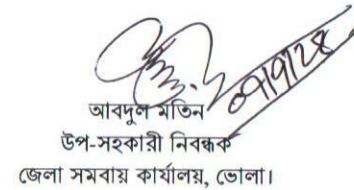 আবদুল মতিন
উপ-সহকারী নিবন্ধক
জেলা সমবায় কার্যালয়, ভোলা।